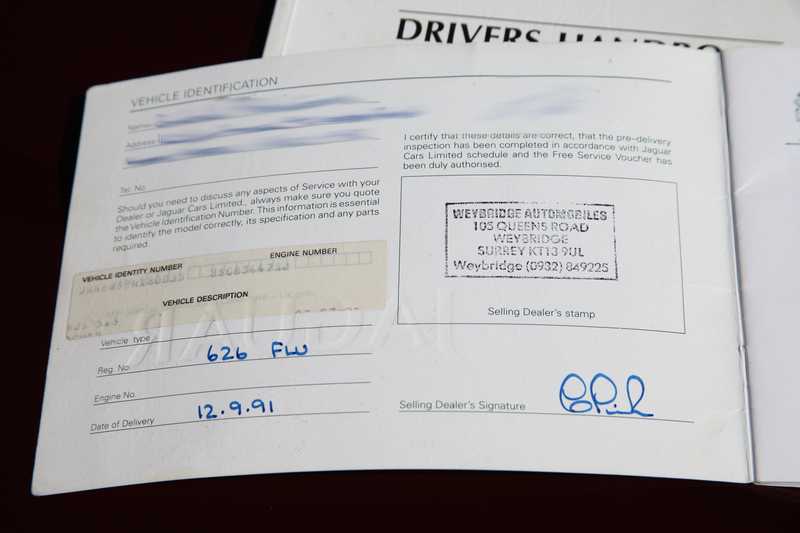 DRIVERS HANDBO
VEHICLE IDENTIFICATION
Name
Address
Tel. No.
Should you need to discuss any aspects of Service with your
Dealer or Jaguar Cars Limited., always make sure you quote
the Vehicle Identification Number. This information is essential
to identify the model correctly, its specification and any parts
required.
VEHICLE IDENTITY NUMBER
ENGINE NUMBER
VEHICLE DESCRIPTION
Vehicle type
Reg. No. 626 FLU
Engine No.
Date of Delivery 12.9.91
I certify that these details are correct, that the pre-delivery
inspection has been completed in accordance with Jaguar
Cars Limited schedule and the Free Service Voucher has
been duly authorised.
WEYBRIDGE AUTOMOBILES
105 QUEENS ROAD
WEYBRIDGE
SURREY KT13 9UL
Weybridge (0932) 849225
Selling Dealer's stamp
Selling Dealer's Signature